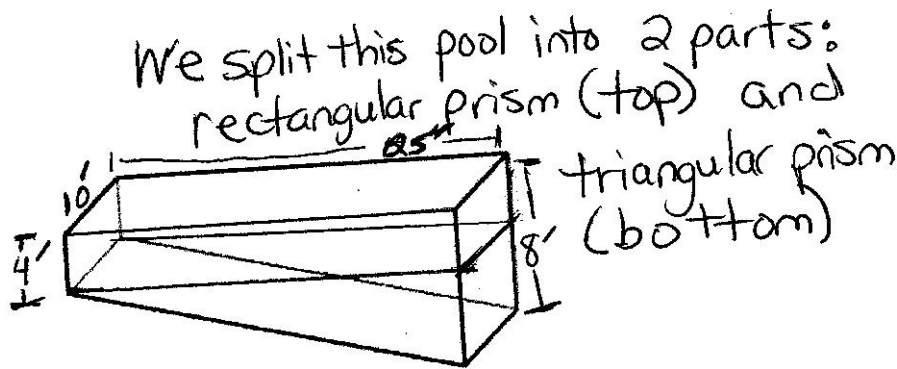 We split this pool into 2 parts:
rectangular prism (top) and
25"
triangular prism
10'
(bottom)
8'
4'